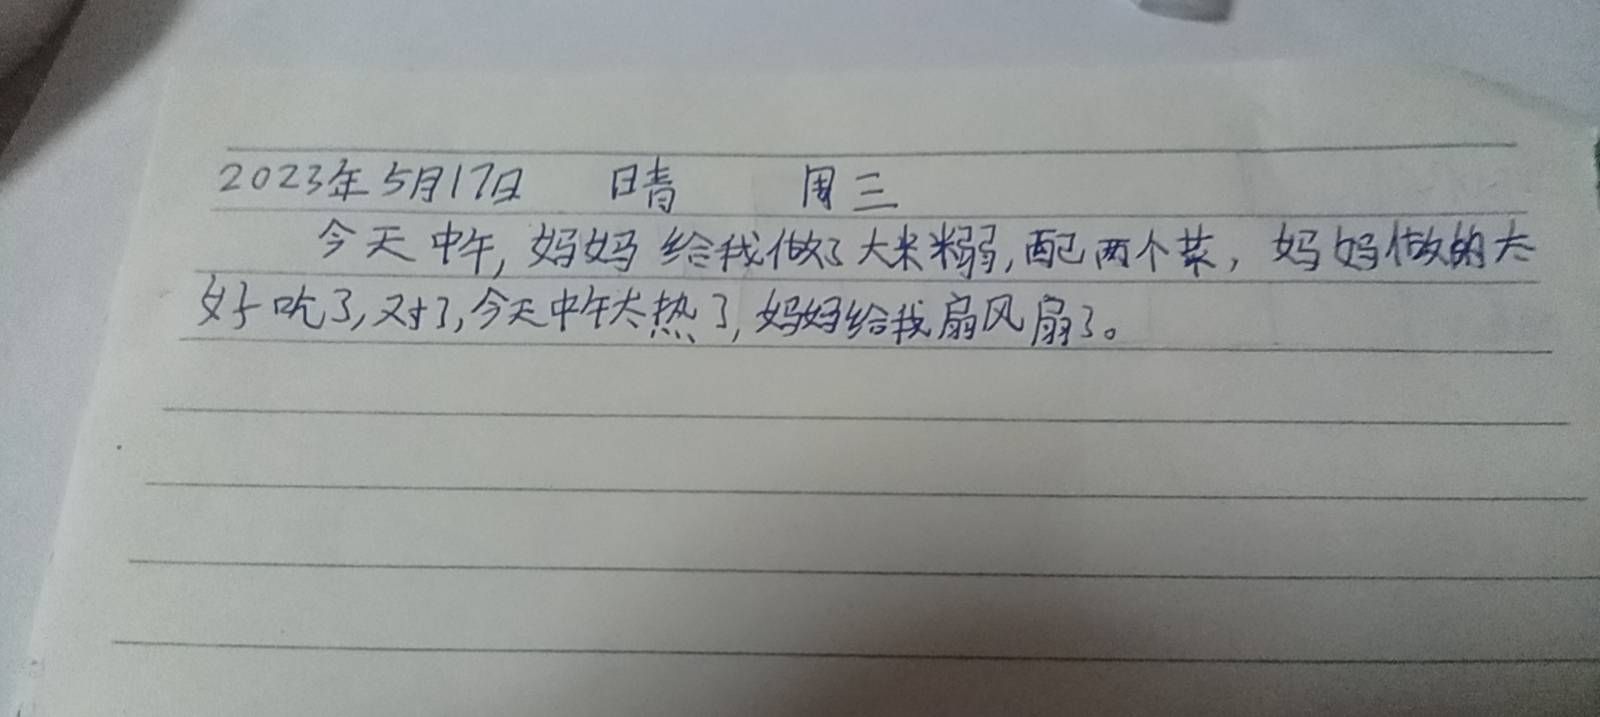 2023年5月17日 晴 周三
今天中午,妈妈给我做了大米粥,配两个菜,妈妈做的太
好吃了,对了,今天中午太热了,妈妈给我扇风扇了。